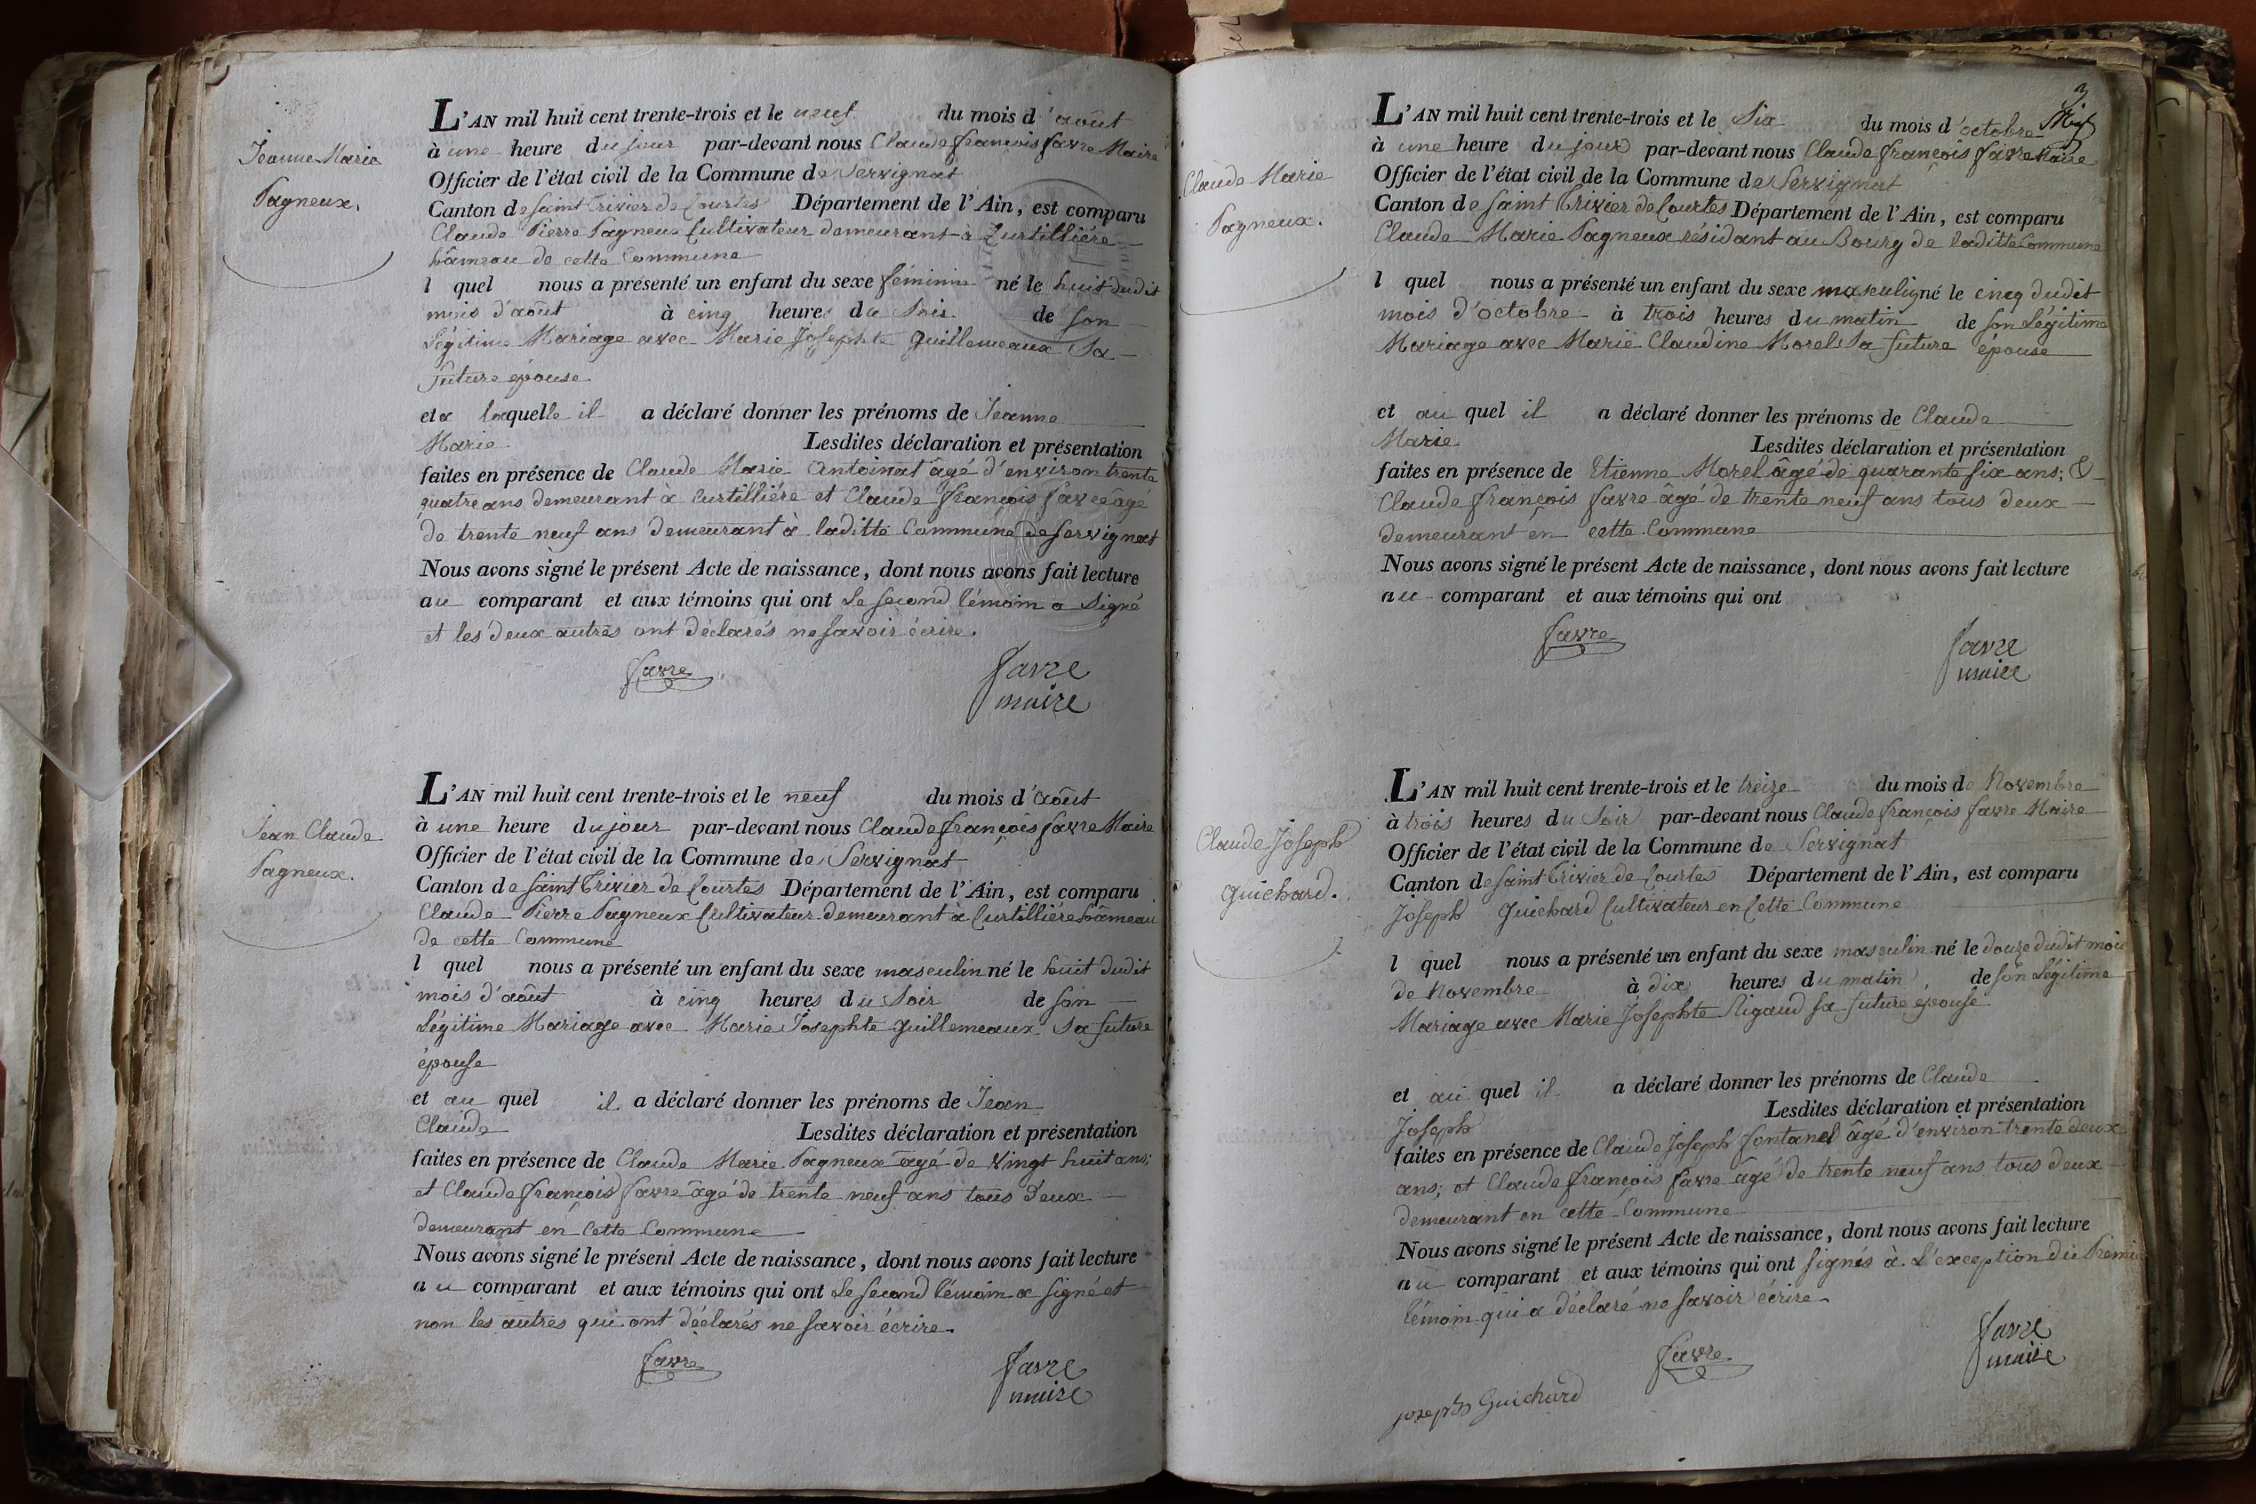 Jeanne Marie
Pagneux.
L'AN mil huit cent trente-trois et le neuf du mois d'août
à une heure du jour par-devant nous Claude françois favre Maire
Officier de l'état civil de la Commune de Servignat
Canton de Saint Trivier de Courtes Département de l'Ain, est comparu
Claude Pierre Pagneux Cultivateur demeurant à Curtillière
hâmeau de cette Commune
l quel nous a présenté un enfant du sexe féminin né le huit dudit
mois d'août à cinq heures du Soir de son
Légitime Mariage avec Marie Josephte Guillemeaux Sa
future épouse
et a laquelle il a déclaré donner les prénoms de Jeanne
Marie Lesdites déclaration et présentation
faites en présence de Claude Marie Antoinat âgé d'environ trente
quatre ans demeurant à Curtillière et Claude françois favre âgé
de trente neuf ans demeurant à laditte Commune de Servignat
Nous avons signé le présent Acte de naissance, dont nous avons fait lecture
au comparant et aux témoins qui ont Le second témoin a Signé
et les deux autres ont déclarés ne savoir écrire.
favre
favre
maire
Jean Claude
Pagneux.
L'AN mil huit cent trente-trois et le neuf du mois d'août
à une heure du jour par-devant nous Claude françois favre Maire
Officier de l'état civil de la Commune de Servignat
Canton de Saint Trivier de Courtes Département de l'Ain, est comparu
Claude Pierre Pagneux Cultivateur demeurant à Curtillière hâmeau
de cette Commune
l quel nous a présenté un enfant du sexe masculin né le huit dudit
mois d'août à cinq heures du Soir de son
Légitime Mariage avec Marie Josephte Guillemeaux Sa future
épouse
et au quel il a déclaré donner les prénoms de Jean
Claude Lesdites déclaration et présentation
faites en présence de Claude Marie Pagneux âgé de vingt huit ans;
et Claude françois favre âgé de trente neuf ans tous deux
demeurant en cette Commune
Nous avons signé le présent Acte de naissance, dont nous avons fait lecture
au comparant et aux témoins qui ont Le second témoin a signé et
non les autres qui ont déclarés ne savoir écrire.
favre
favre
maire
3
Claude Marie
Pagneux.
L'AN mil huit cent trente-trois et le Six du mois d'octobre
à une heure du jour par-devant nous Claude françois favre Maire
Officier de l'état civil de la Commune de Servignat
Canton de Saint Trivier de Courtes Département de l'Ain, est comparu
Claude Marie Pagneux résidant au Bourg de laditte Commune
l quel nous a présenté un enfant du sexe masculin né le cinq dudit
mois d'octobre à trois heures du matin de son Légitime
Mariage avec Marie Claudine Morel Sa future épouse
et au quel il a déclaré donner les prénoms de Claude
Marie Lesdites déclaration et présentation
faites en présence de Etienne Morel âgé de quarante six ans; &
Claude françois favre âgé de trente neuf ans tous deux
demeurant en cette Commune
Nous avons signé le présent Acte de naissance, dont nous avons fait lecture
au comparant et aux témoins qui ont
favre
favre
maire
Claude Joseph
Guichard.
L'AN mil huit cent trente-trois et le treize du mois de Novembre
à trois heures du Soir par-devant nous Claude françois favre Maire
Officier de l'état civil de la Commune de Servignat
Canton de Saint Trivier de Courtes Département de l'Ain, est comparu
Joseph Guichard Cultivateur en Cette Commune
l quel nous a présenté un enfant du sexe masculin né le douze dudit mois
de Novembre à dix heures du matin de son Légitime
Mariage avec Marie Josephte Rigaud sa future épouse
et au quel il a déclaré donner les prénoms de Claude
Joseph Lesdites déclaration et présentation
faites en présence de Claude Joseph fontanel âgé d'environ trente deux
ans; et Claude françois favre âgé de trente neuf ans tous deux
demeurant en cette Commune
Nous avons signé le présent Acte de naissance, dont nous avons fait lecture
au comparant et aux témoins qui ont signés à L'exception du Premier
témoin qui a déclaré ne savoir écrire.
favre
favre
maire
joseph Guichard